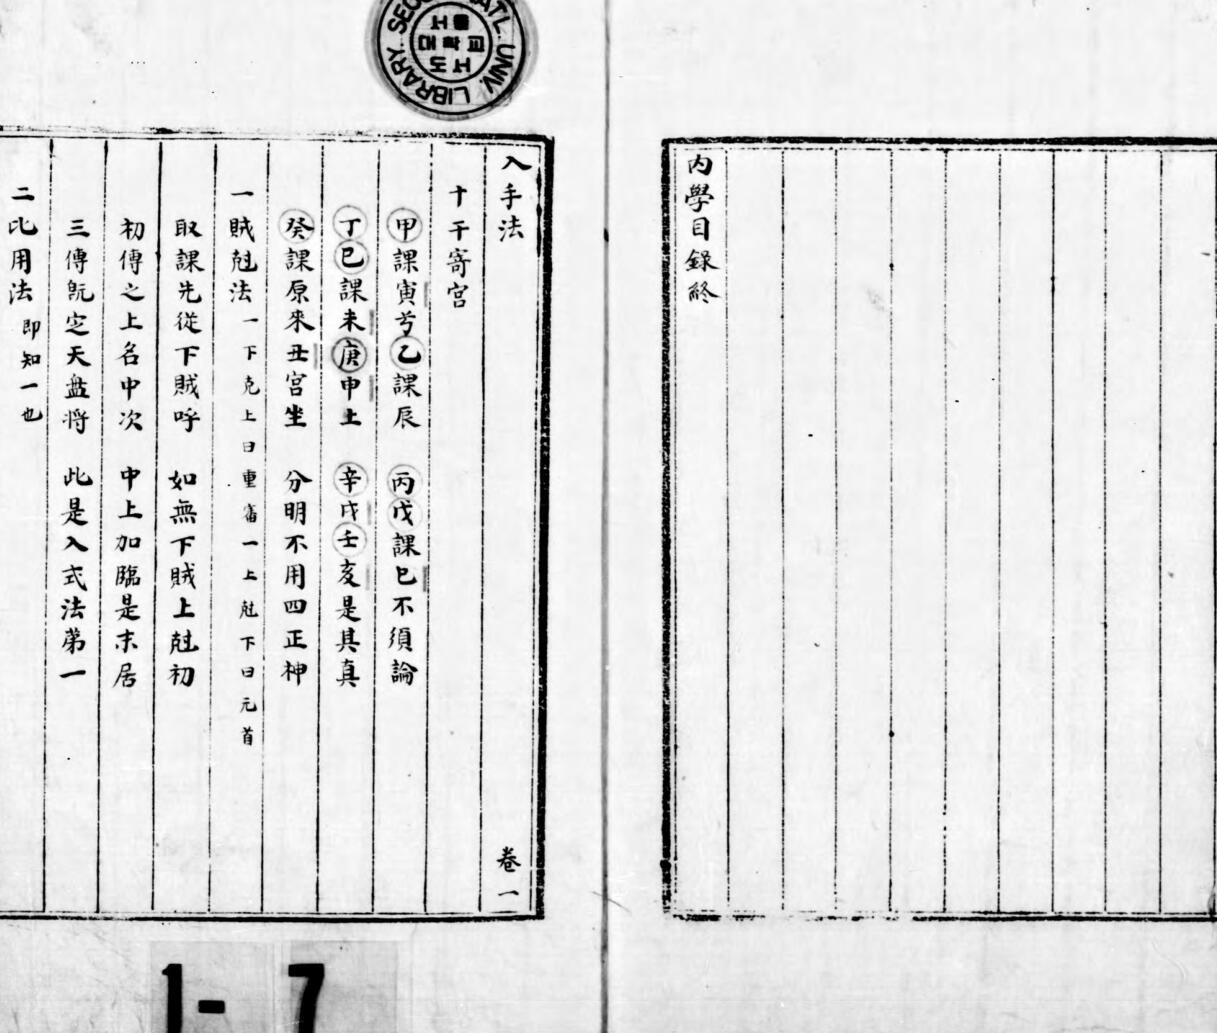 內學目錄終
入手法 卷一
十干寄宮
甲課寅兮乙課辰 丙戊課巳不須論
丁巳課未庚申上 辛戌壬亥是其真
癸課原來丑宮坐 分明不用四正神
一賊尅法 一下克上曰重審一上尅下曰元首
取課先從下賊呼 如無下賊上尅初
初傳之上名中次 中上加臨是末居
三傳旣定天盤將 此是入式法第一
二比用法 即知一也
SEOUL NATL. UNIV. LIBRARY.
서울
대학교
도서
1- 7